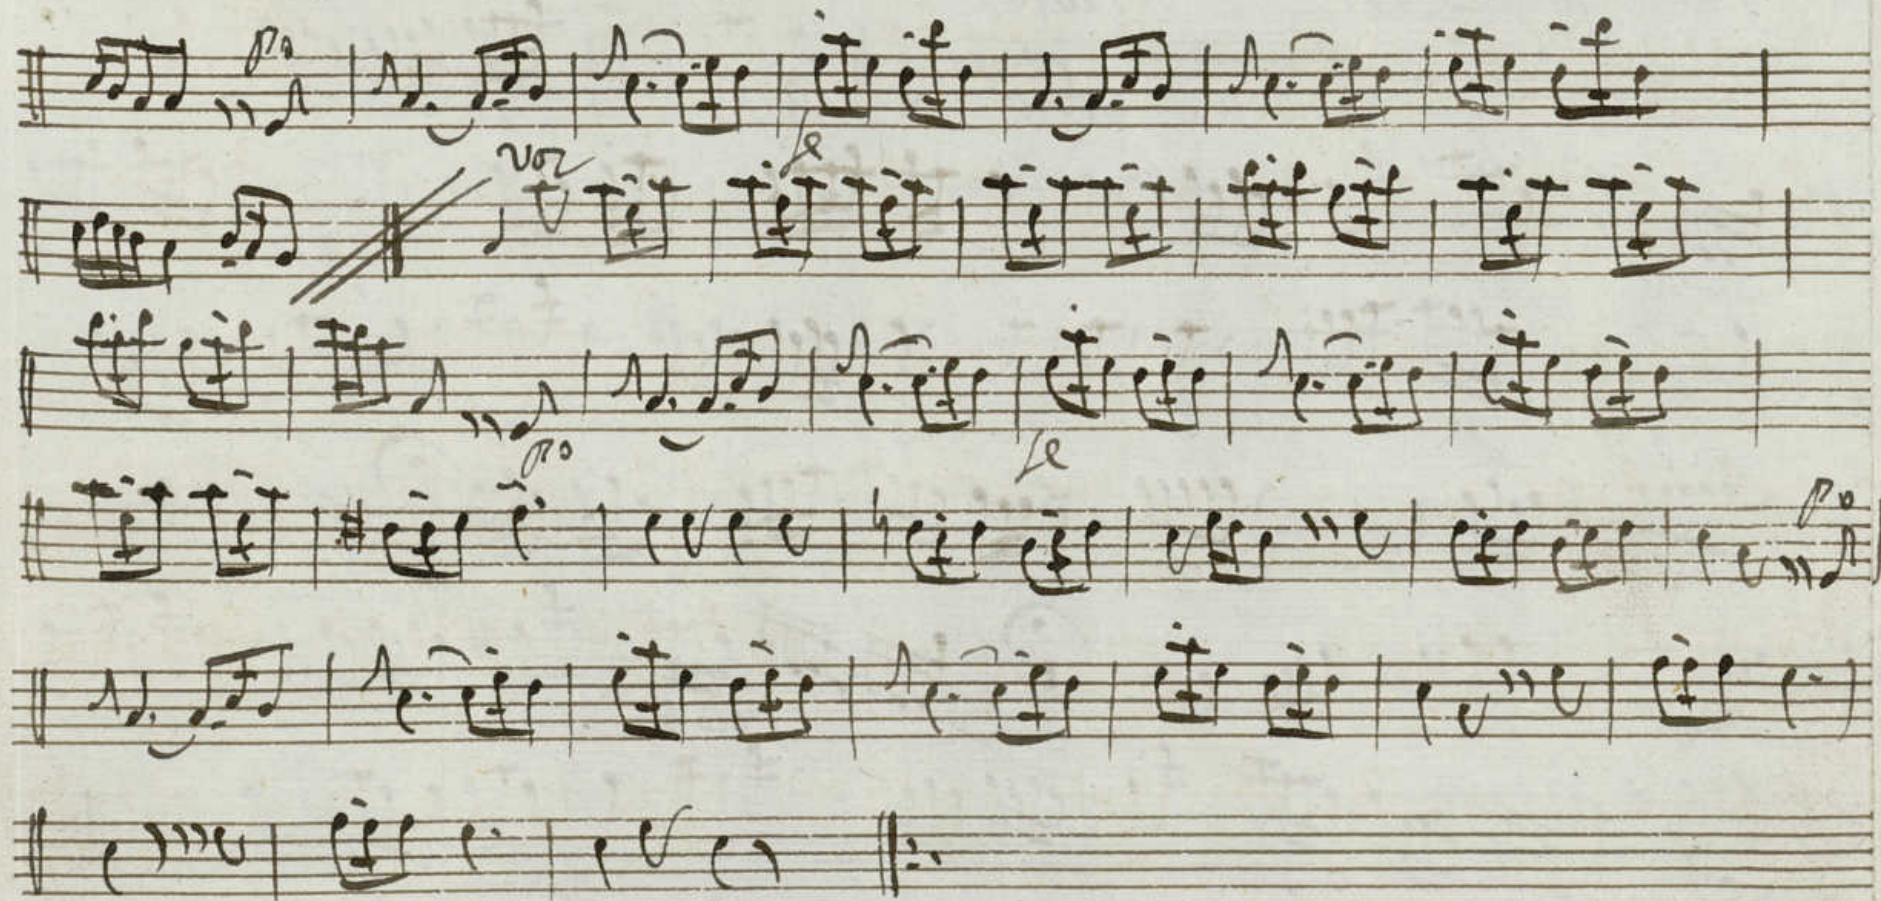 po
voz fe
po fe
po